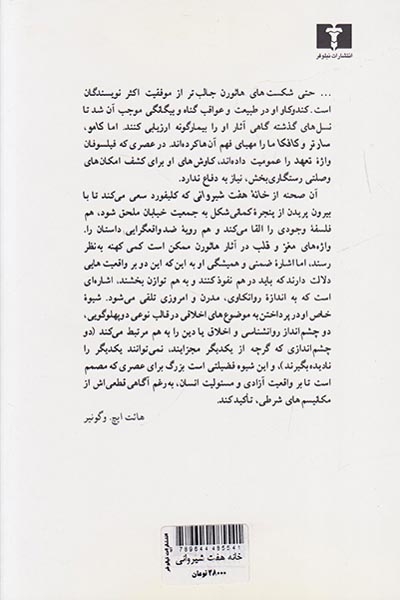 انتشارات نیلوفر
... حتی شکست‌های هاثورن جالب‌تر از موفقیت اکثر نویسندگان
است. کندوکاو او در طبیعت و عواقب گناه و بیگانگی موجب آن شد تا
نسل‌های گذشته گاهی آثار او را بیمارگونه ارزیابی کنند. اما کامو،
سارتر و کافکا ما را مهیای فهم آن‌ها کرده‌اند. در عصری که فیلسوفان
واژهٔ تعهد را عمومیت داده‌اند، کاوش‌های او برای کشف امکان‌های
وصلتی رستگاری‌بخش، نیاز به دفاع ندارد.
آن صحنه از خانهٔ هفت شیروانی که کلیفورد سعی می‌کند تا با
بیرون پریدن از پنجرهٔ کمانی‌شکل به جمعیت خیابان ملحق شود، هم
فلسفهٔ وجودی را القا می‌کند و هم رویهٔ ضدواقعگرایی داستان را.
واژه‌های مغز و قلب در آثار هاثورن ممکن است کمی کهنه به‌نظر
رسند، اما اشارهٔ ضمنی و همیشگی او به این که این دو بر واقعیت‌هایی
دلالت دارند که باید در هم نفوذ کنند و به هم توازن بخشند، اشاره‌ای
است که به اندازهٔ روانکاوی، مدرن و امروزی تلقی می‌شود. شیوهٔ
خاص او در پرداختن به موضوع‌های اخلاقی در قالب نوعی دوپهلوگویی،
دو چشم‌انداز روانشناسی و اخلاق یا دین را به هم مرتبط می‌کند (دو
چشم‌اندازی که گرچه از یکدیگر مجزایند، نمی‌توانند یکدیگر را
نادیده بگیرند)، و این شیوه فضیلتی است بزرگ برای عصری که مصمم
است تا بر واقعیت آزادی و مسئولیت انسان، به‌رغم آگاهی قطعی‌اش از
مکانیسم‌های شرطی، تأکید کند.
هائت اچ. وگونیر
انتشارات نیلوفر
789644 485541
خانه هفت شیروانی
۲۸۰۰۰ تومان